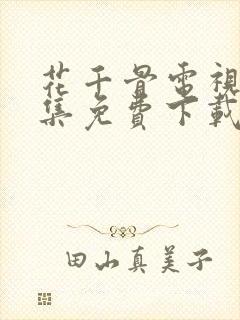 花千骨電視
集免費下載
田山真美子